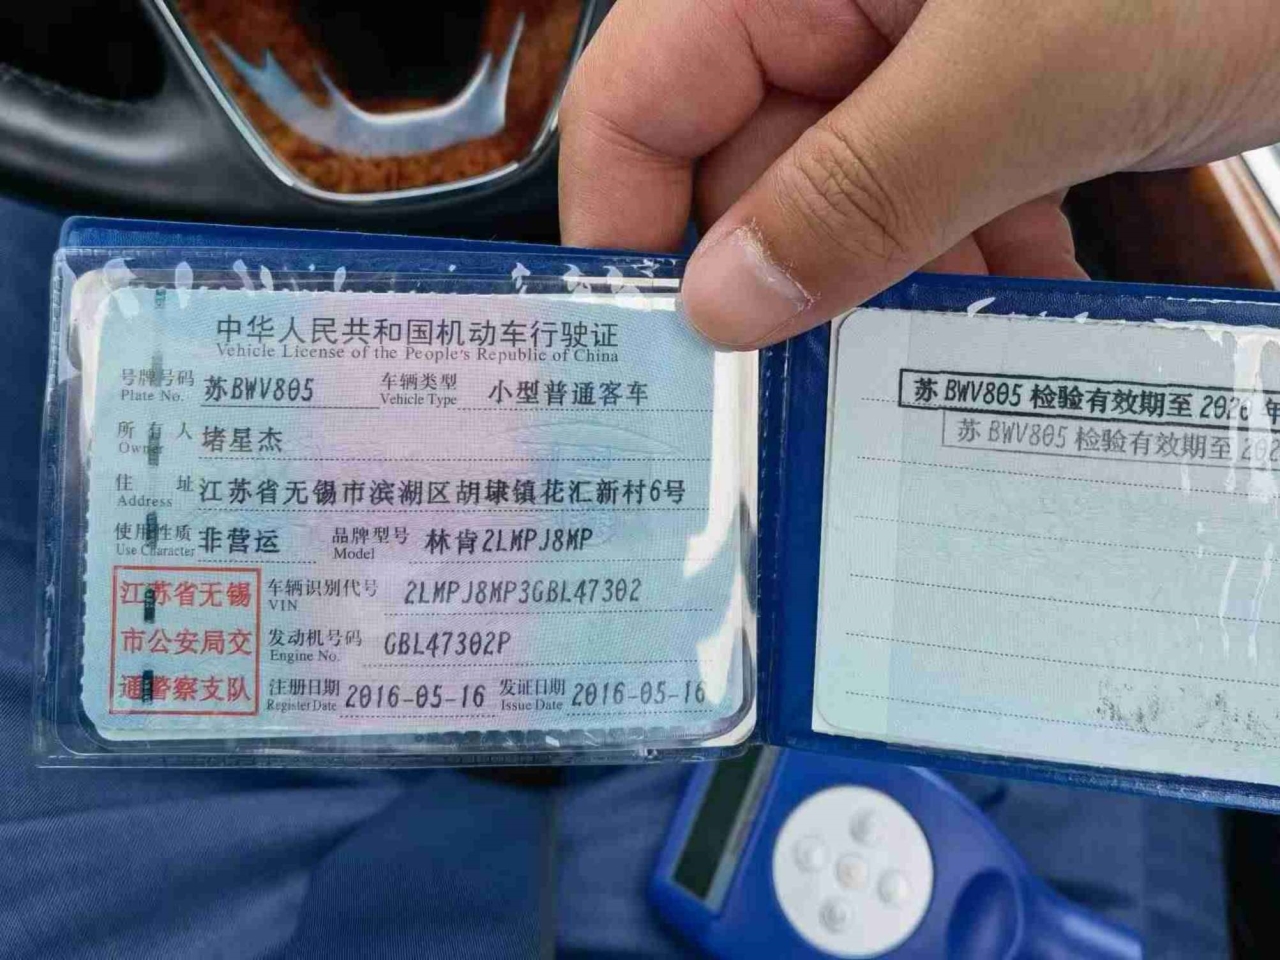 中华人民共和国机动车行驶证
Vehicle License of the People's Republic of China
号牌号码 苏BWV805 车辆类型 小型普通客车
Plate No. Vehicle Type
所有人 堵星杰
Owner
住址 江苏省无锡市滨湖区胡埭镇花汇新村6号
Address
使用性质 非营运 品牌型号 林肯2LMPJ8MP
Use Character Model
车辆识别代号 2LMPJ8MP3GBL47302
VIN
发动机号码 GBL47302P
Engine No.
注册日期 2016-05-16 发证日期 2016-05-16
Register Date Issue Date
江苏省无锡
市公安局交
通警察支队
苏BWV805 检验有效期至 2020 年
苏BWV805 检验有效期至 202